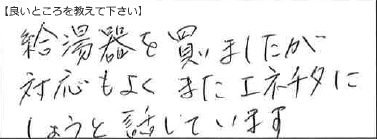 【良いところを教えて下さい】
給湯器を買いましたが
対応もよく またエネチタに
しようと話しています